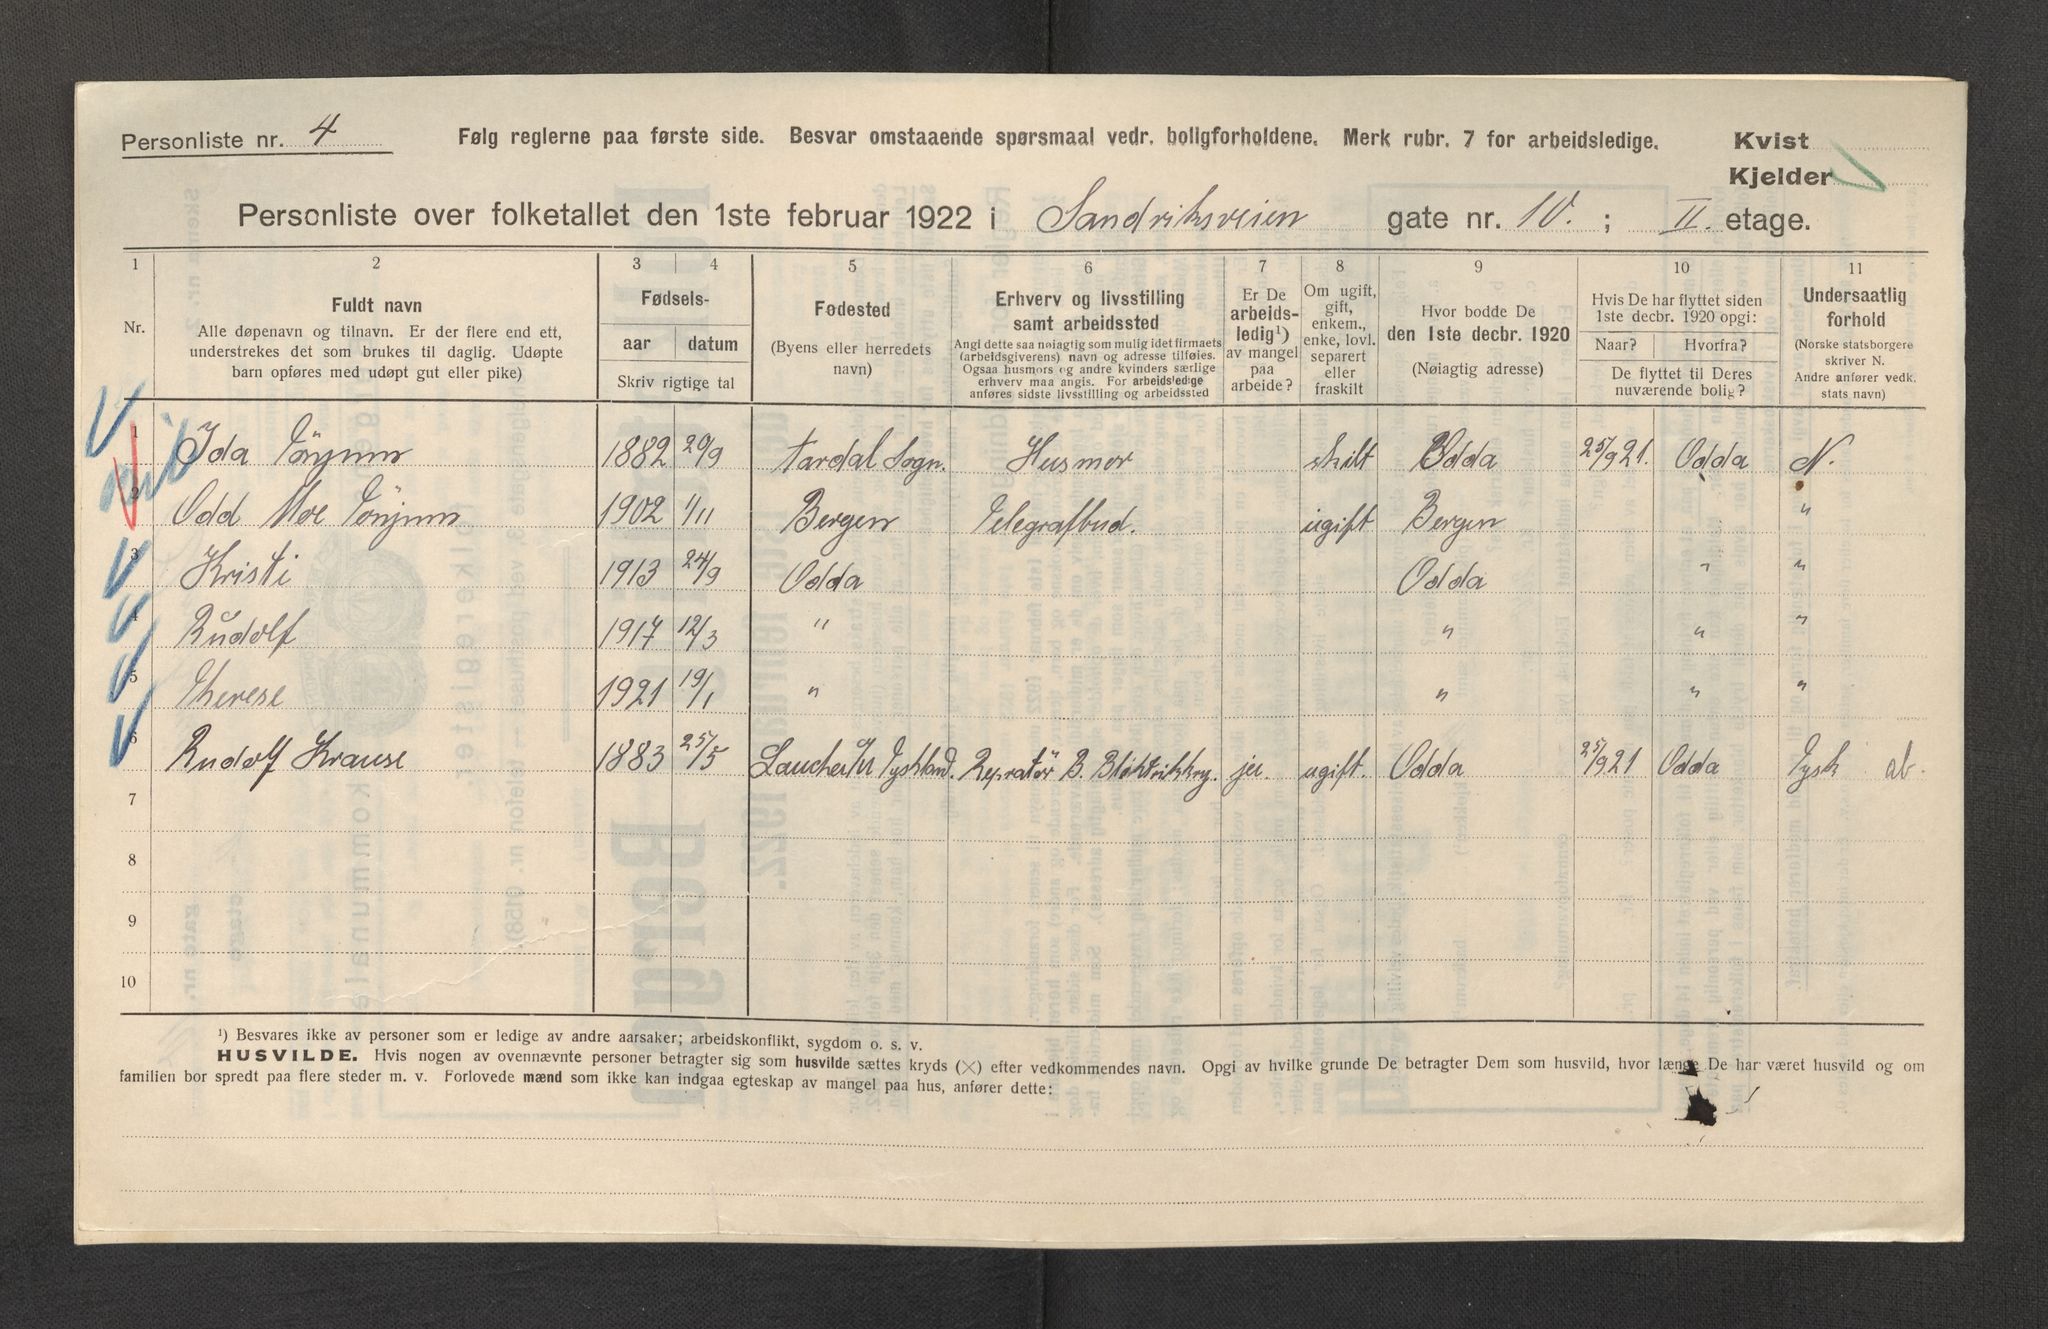 Personliste nr. 4
Følg reglerne paa første side. Besvar omstaaende spørsmaal vedr. boligforholdene. Merk rubr. 7 for arbeidsledige.
Kvist
Kjelder
Personliste over folketallet den 1ste februar 1922 i Sandviksveien gate nr. 10. ; II. etage.
1 2 3 4 5 6 7 8 9 10 11
Nr.
Fuldt navn
Alle døpenavn og tilnavn. Er der flere end ett,
understrekes det som brukes til daglig. Udøpte
barn opføres med udøpt gut eller pike)
Fødsels-
aar datum
Skriv rigtige tal
Fødested
(Byens eller herredets
navn)
Erhverv og livsstilling
samt arbeidssted
Angi dette saa nøiagtig som mulig idet firmaets
(arbeidsgiverens) navn og adresse tilføies.
Ogsaa husmors og andre kvinders særlige
erhverv maa angis. For arbeidsledige
anføres sidste livsstilling og arbeidssted
Er De
arbeids-
ledig¹)
av mangel
paa
arbeide?
Om ugift,
gift,
enkem.,
enke, lovl.
separert
eller
fraskilt
Hvor bodde De
den 1ste decbr. 1920
(Nøiagtig adresse)
Hvis De har flyttet siden
1ste decbr. 1920 opgi:
Naar? Hvorfra?
De flyttet til Deres
nuværende bolig?
Undersaatlig
forhold
(Norske statsborgere
skriver N.
Andre anfører vedk.
stats navn)
1 Ida 1882 20/9 Aardal Sogn. Husmor skilt Odda 25/9 21. Odda N.
2 Odd Moe 1902 1/11 Bergen Telegrafbud. ugift Bergen "
3 Kristi 1913 24/9 Odda Odda " "
4 Rudolf 1917 12/3 " " " "
5 Therese 1921 19/1 " " " "
6 Rudolf Krause 1883 25/5 Tyskland. B. ja. ugift. Odda 25/9 21 Odda Tysk ab.
7
8
9
10
¹) Besvares ikke av personer som er ledige av andre aarsaker; arbeidskonflikt, sygdom o. s. v.
HUSVILDE. Hvis nogen av ovennævnte personer betragter sig som husvilde sættes kryds (×) efter vedkommendes navn. Opgi av hvilke grunde De betragter Dem som husvild, hvor længe De har været husvild og om
familien bor spredt paa flere steder m. v. Forlovede mænd som ikke kan indgaa egteskap av mangel paa hus, anfører dette: